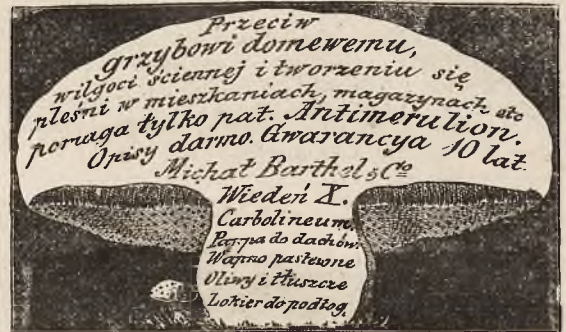 Przeciw
grzybowi domewemu,
wilgoci ściennej i tworzeniu się
pleśni w mieszkaniach, magazynach etc
pomaga tylko pat. Antimerulion.
Opisy darmo. Gwarancya 10 lat.
Michał Barthel & Co
Wiedeń X.
Carbolineum.
Pappa do dachów.
Wapno pastewne
Oliwy i tłuszcze
Lokier do podłog.